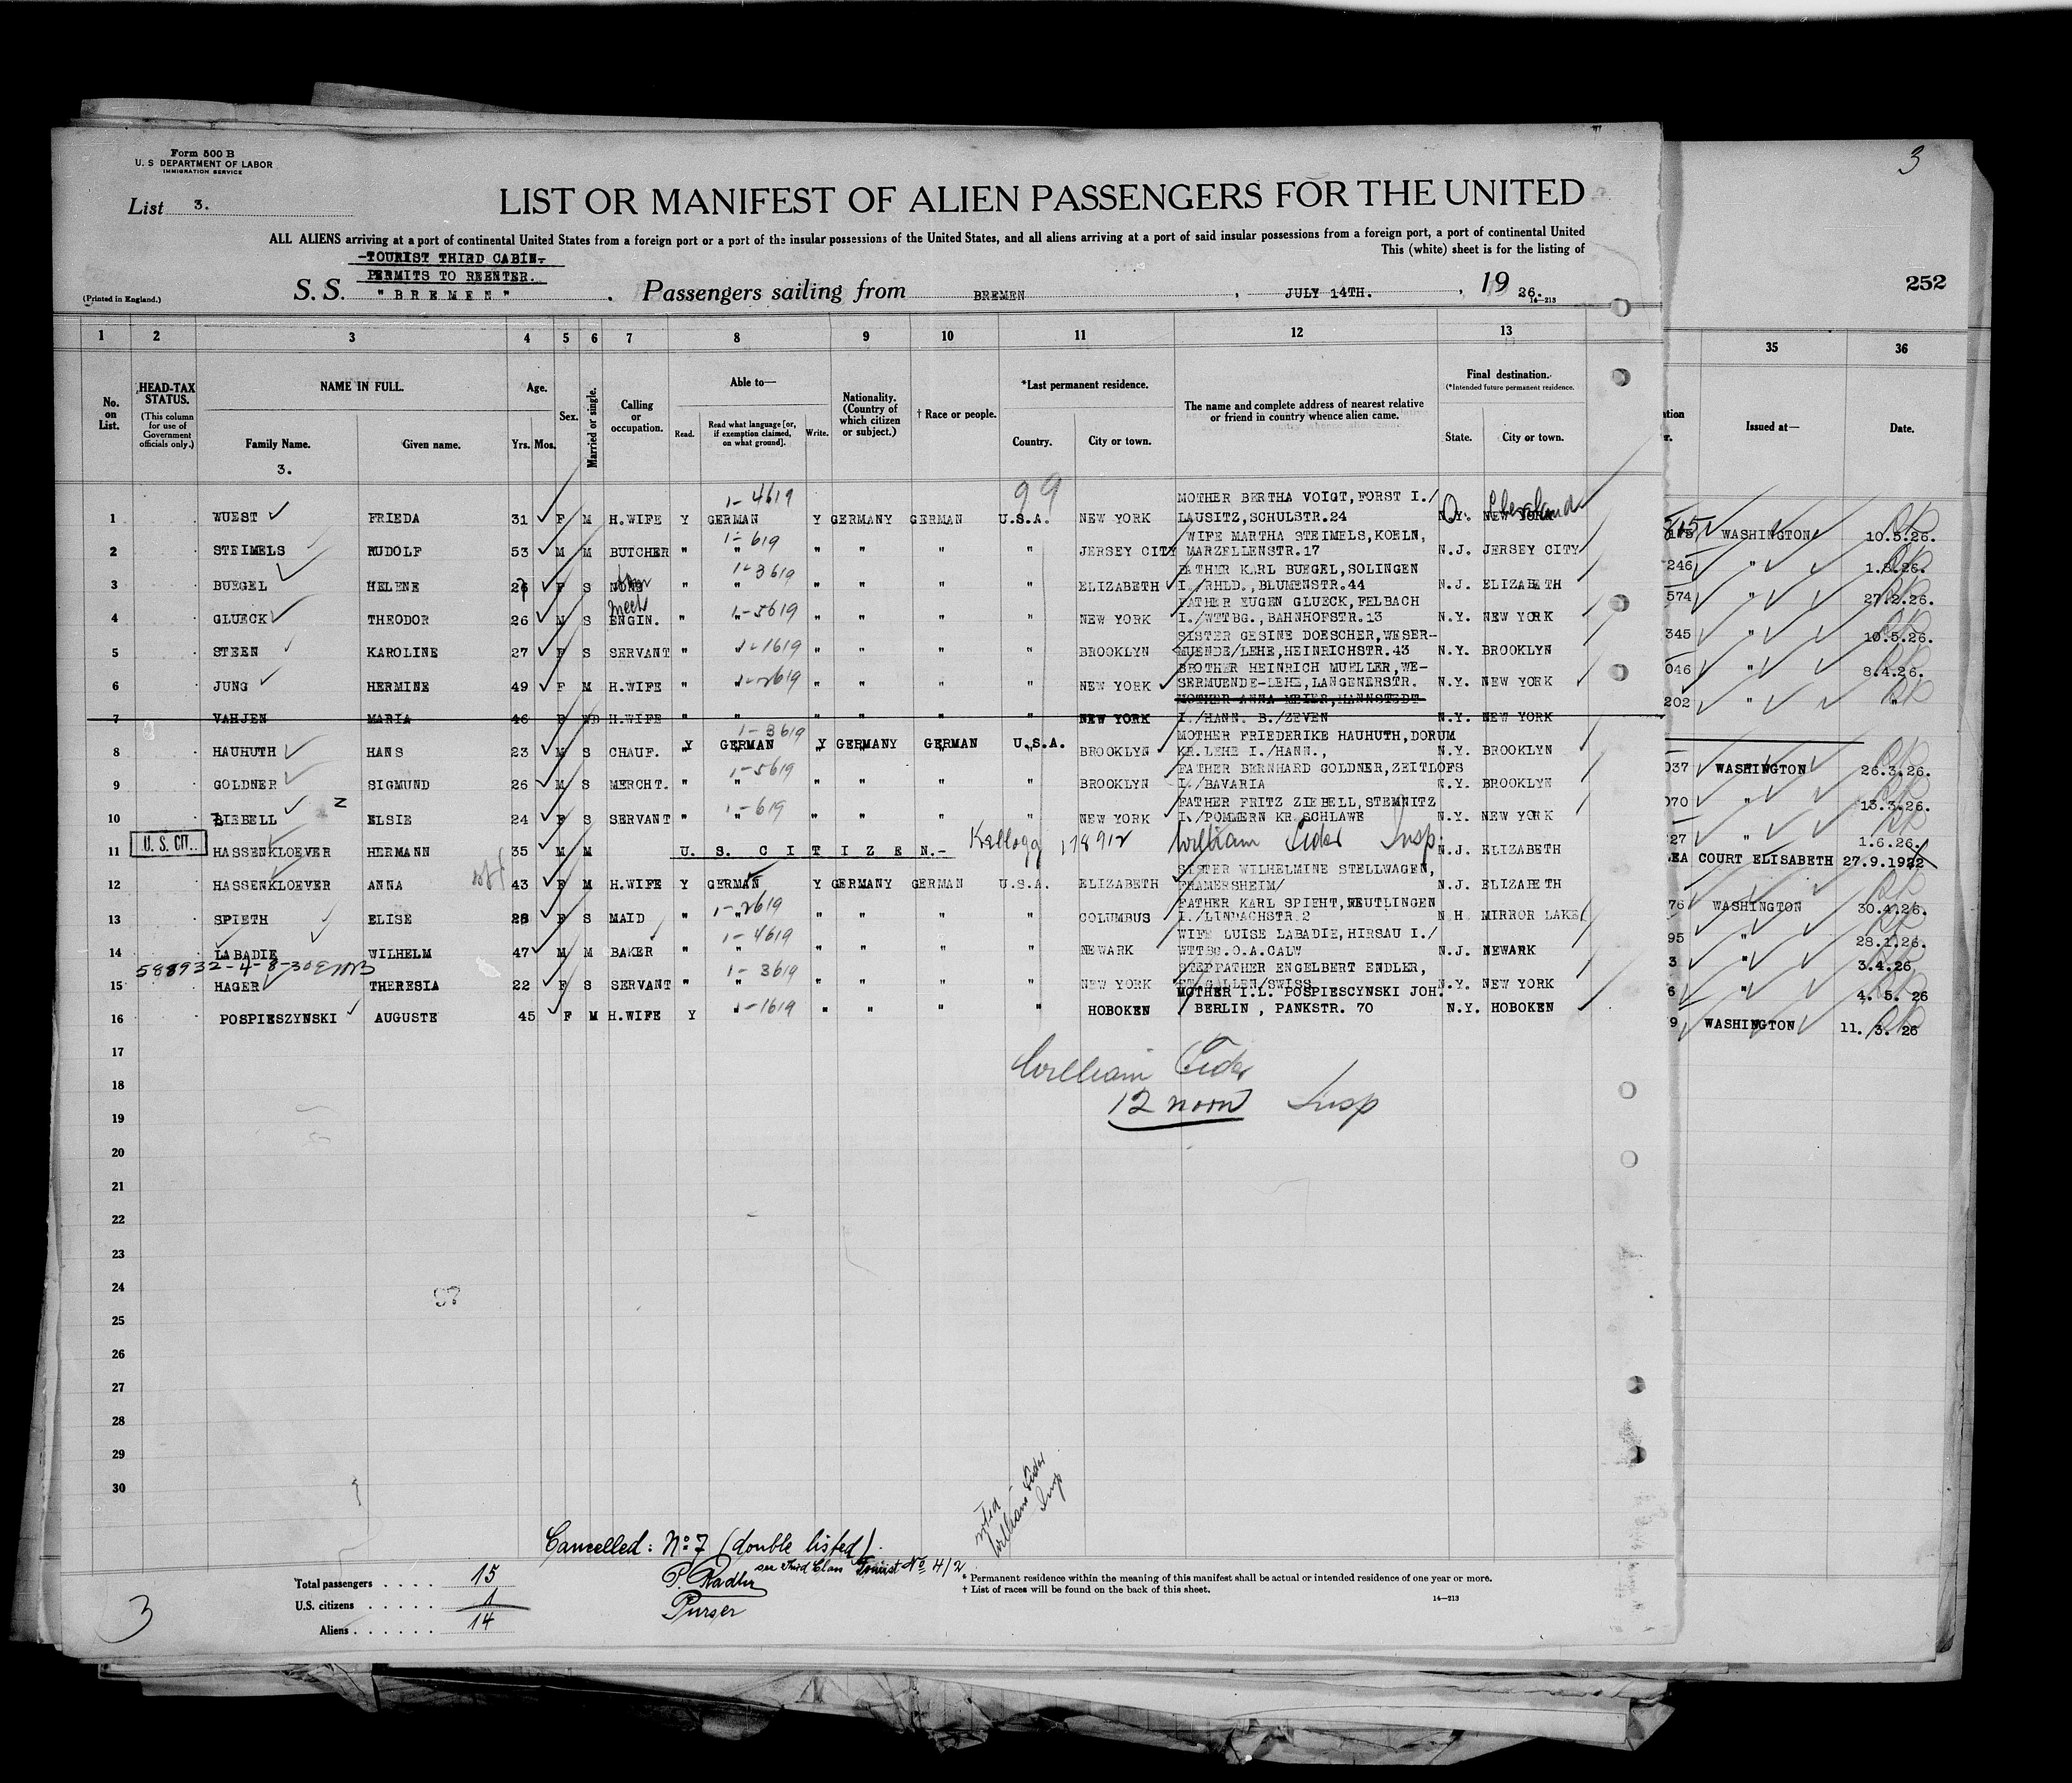 3
Form 500 B
U. S DEPARTMENT OF LABOR
IMMIGRATION SERVICE
List 3.
LIST OR MANIFEST OF ALIEN PASSENGERS FOR THE UNITED
ALL ALIENS arriving at a port of continental United States from a foreign port or a port of the insular possessions of the United States, and all aliens arriving at a port of said insular possessions from a foreign port, a port of continental United
This (white) sheet is for the listing of
-TOURIST THIRD CABIN-
PERMITS TO REENTER.
(Printed in England.) S. S. "BREMEN" . Passengers sailing from BREMEN , JULY 14TH. , 19 26.
14—213
252
1 2 3 4 5 6 7 8 9 10 11 12 13 35 36
No. on List.
HEAD-TAX STATUS. (This column for use of Government officials only.)
NAME IN FULL.
Family Name. Given name.
3.
Age. Yrs. Mos.
Sex.
Married or single.
Calling or occupation.
Able to—
Read. Read what language [or, if exemption claimed, on what ground]. Write.
Nationality. (Country of which citizen or subject.)
† Race or people.
*Last permanent residence.
Country. City or town.
The name and complete address of nearest relative or friend in country whence alien came.
Final destination.
(*Intended future permanent residence.
State. City or town.
Issued at— Date.
99
1-4619 MOTHER BERTHA VOIGT,FORST I./
1 WUEST FRIEDA 31 F M H.WIFE Y GERMAN Y GERMANY GERMAN U.S.A. NEW YORK LAUSITZ,SCHULSTR.24 N.Y. NEW YORK O. Cleveland WASHINGTON 10.5.26.
1-619 WIFE MARTHA STEIMELS,KOELN,
2 STEIMELS RUDOLF 53 M M BUTCHER " " " " " " JERSEY CITY MARZELLENSTR.17 N.J. JERSEY CITY 246 " 1.6.26.
1-3619 FATHER KARL BUEGEL,SOLINGEN
3 BUEGEL HELENE 26 F S NONE " " " " " " ELIZABETH I./RHLD.,BLUMENSTR.44 N.J. ELIZABETH 574 " 27.2.26.
mech 1-5619 FATHER EUGEN GLUECK,FELBACH
4 GLUECK THEODOR 26 M S ENGIN. " " " " " " NEW YORK I./WTTBG.,BAHNHOFSTR.13 N.Y. NEW YORK 345 " 10.5.26.
1-1619 SISTER GESINE DOESCHER,WESER-
5 STEEN KAROLINE 27 F S SERVANT " " " " " " BROOKLYN MUENDE/LEHE,HEINRICHSTR.43 N.Y. BROOKLYN 046 " 8.4.26.
1-2619 BROTHER HEINRICH MUELLER,WE-
6 JUNG HERMINE 49 F M H.WIFE " " " " " " NEW YORK SERMUENDE-LEHE,LANGENERSTR. N.Y. NEW YORK 202 " "
MOTHER ANNA MEIER,HANNSTEDT
7 VAHJEN MARIA 46 F WD H.WIFE " " " " " " NEW YORK I./HANN. B./ZEVEN N.Y. NEW YORK
1-3619 MOTHER FRIEDERIKE HAUHUTH,DORUM
8 HAUHUTH HANS 23 M S CHAUF. Y GERMAN Y GERMANY GERMAN U.S.A. BROOKLYN KR.LEHE I./HANN., N.Y. BROOKLYN 037 WASHINGTON 26.3.26.
1-5619 FATHER BERNHARD GOLDNER,ZEITLOFS
9 GOLDNER SIGMUND 26 M S MERCHT. " " " " " " BROOKLYN I./BAVARIA N.Y. BROOKLYN 070 " 13.3.26.
Z 1-619 FATHER FRITZ ZIEBELL,STEMNITZ
10 ZIEBELL ELSIE 24 F S SERVANT " " " " " " NEW YORK I./POMMERN KR.SCHLAWE N.Y. NEW YORK 727 " 1.6.26.
U. S. CIT.. Kellogg 178912 William Insp.
11 HASSENKLOEVER HERMANN 35 M M U. S. C I T I Z E N.- N.J. ELIZABETH COURT ELISABETH 27.9.1922
SISTER WILHELMINE STELLWAGEN,
12 HASSENKLOEVER ANNA 43 F M H.WIFE Y GERMAN Y GERMANY GERMAN U.S.A. ELIZABETH FRAMERSHEIM/ N.J. ELIZABETH 76 WASHINGTON 30.4.26.
1-2619 FATHER KARL SPIEHT,REUTLINGEN
13 SPIETH ELISE 28 F S MAID " " " " " " COLUMBUS I./LINDACHSTR.2 N.H. MIRROR LAKE 95 " 28.1.26.
1-4619 WIFE LUISE LABADIE,HIRSAU I./
14 LABADIE WILHELM 47 M M BAKER " " " " " " NEWARK WTTBG.O.A.CALW N.J. NEWARK 3 " 3.4.26
1-3619 STEPFATHER ENGELBERT ENDLER,
15 HAGER THERESIA 22 F S SERVANT " " " " " " NEW YORK ST.GALLEN/SWISS N.Y. NEW YORK 6 " 4. 5. 26
1-1619 MOTHER I.L. POSPIESCYNSKI JOH.
16 POSPIESZYNSKI AUGUSTE 45 F M H.WIFE Y " " " " HOBOKEN BERLIN , PANKSTR. 70 N.Y. HOBOKEN 9 WASHINGTON 11. 3. 26
17
18
19
20
21
22
23
24
25
26
27
28
29
30
William
12 noon Insp
noted
William
Insp
Cancelled: No 7 (double listed).
see Third Class Tourist No 4/2
Purser
Total passengers . . . . 15
U.S. citizens . . . . . 1
Aliens . . . . . . 14
3
* Permanent residence within the meaning of this manifest shall be actual or intended residence of one year or more.
† List of races will be found on the back of this sheet.
14—213